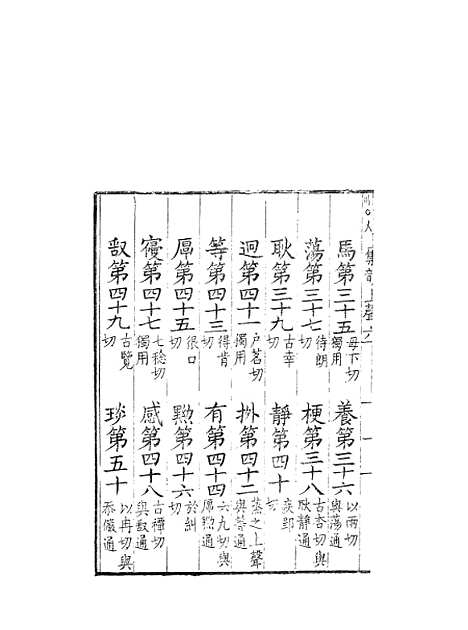 集韻上聲
馬第三十五母下切獨用 養第三十六以兩切與蕩通
蕩第三十七待朗切 梗第三十八古杏切與耿靜通
耿第三十九古幸切 靜第四十疾郢切
迥第四十一戶茗切獨用 拯第四十二蒸之上聲與等通
等第四十三得肯切 有第四十四云九切與厚黝通
厚第四十五很口切 黝第四十六於糾切
寑第四十七七稔切獨用 感第四十八古禫切與敢通
敢第四十九古覽切 琰第五十以冉切與忝儼通